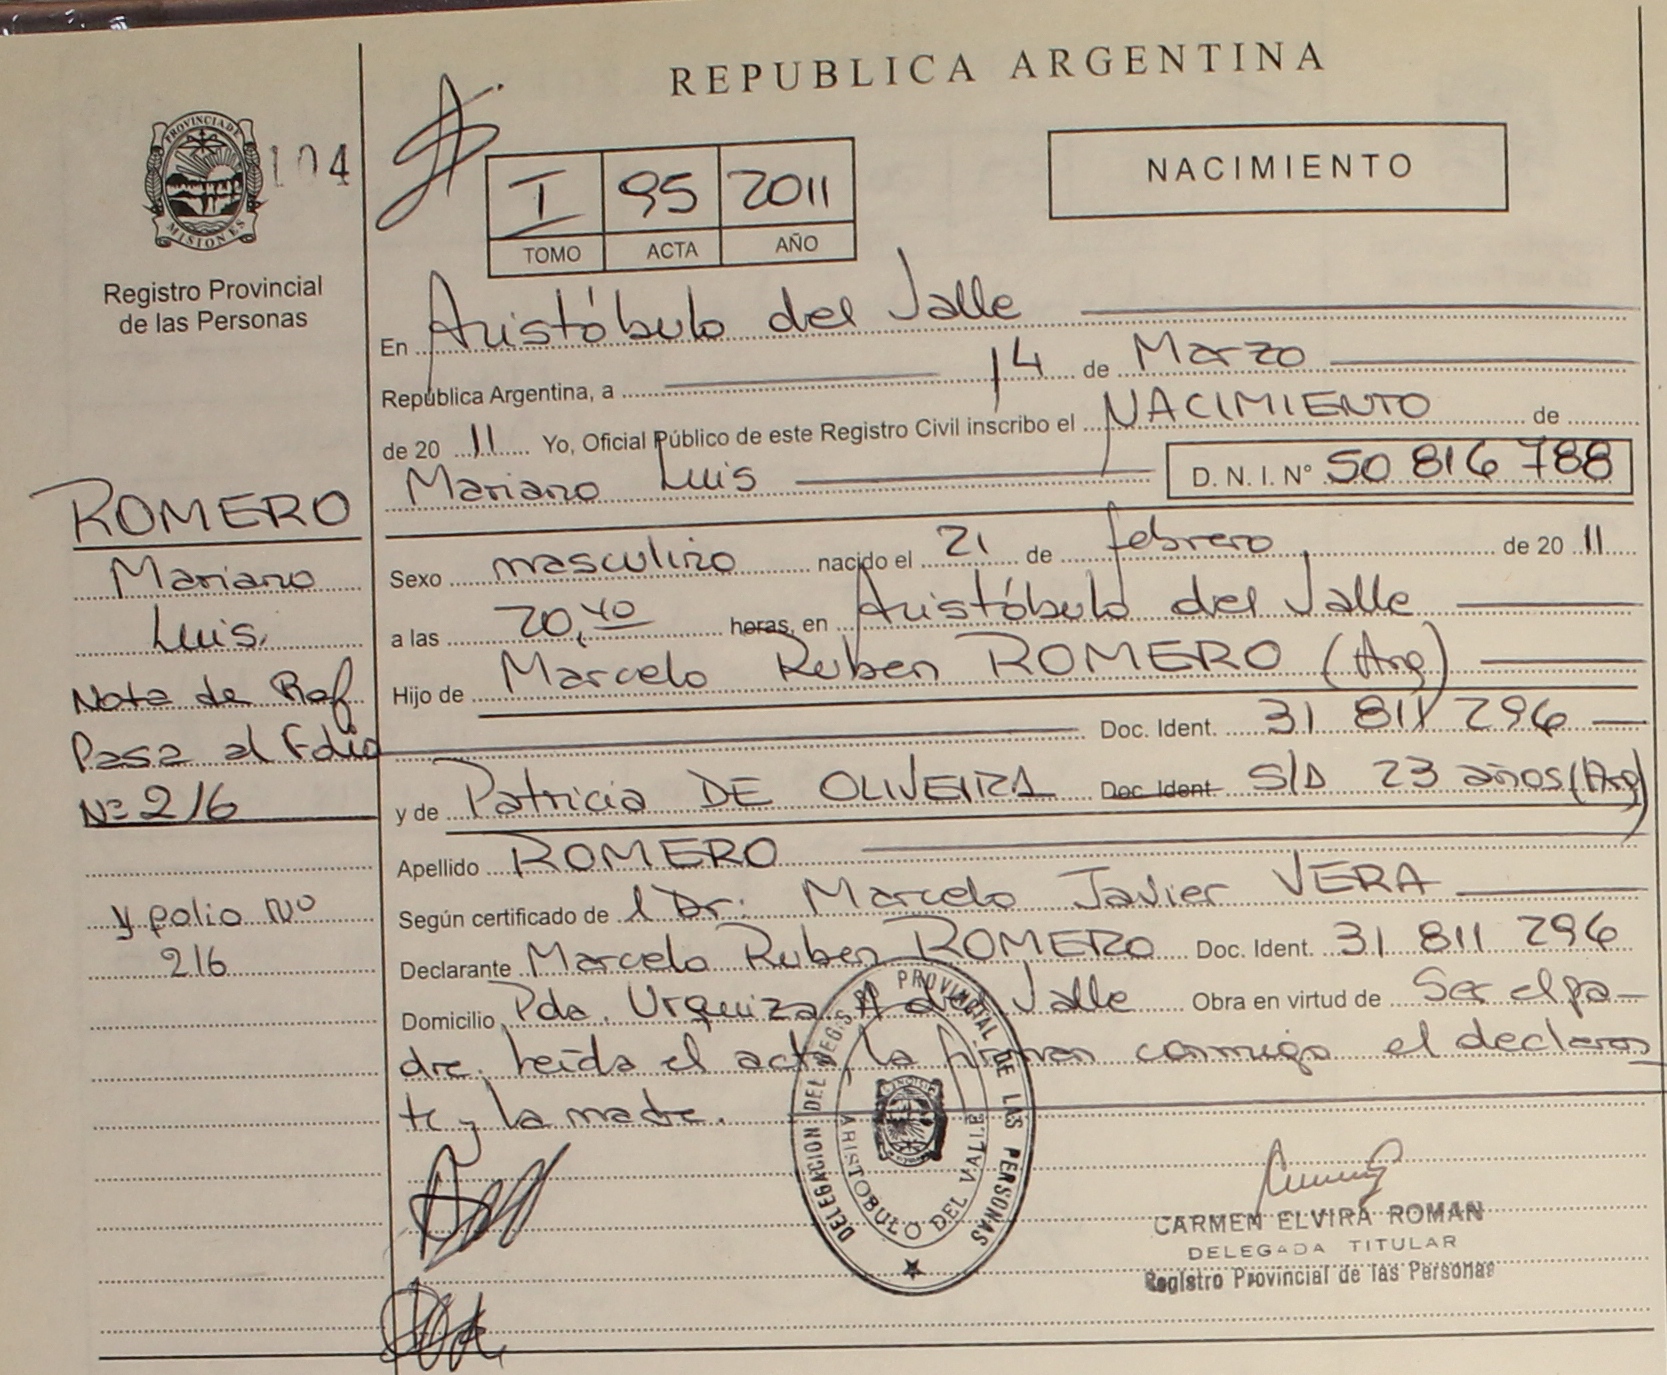 REPUBLICA ARGENTINA
PROVINCIA DE
MISIONES
104
Registro Provincial
de las Personas
I 95 2011
TOMO ACTA AÑO
NACIMIENTO
En Aristóbulo del Valle
República Argentina, a 14 de Marzo
de 20 11 Yo, Oficial Público de este Registro Civil inscribo el NACIMIENTO de
Mariano Luis D. N. I. Nº 50 816 788
Sexo masculino nacido el 21 de febrero de 20 11
a las 20,40 horas, en Aristóbulo del Valle
Hijo de Marcelo Ruben ROMERO (Arg)
Doc. Ident. 31 811 296
y de Patricia DE OLIVEIRA Doc Ident S/D 23 años (Arg)
Apellido ROMERO
Según certificado de l Dr. Marcelo Javier VERA
Declarante Marcelo Ruben ROMERO Doc. Ident. 31 811 296
Domicilio Pda. Urquiza A del Valle Obra en virtud de Ser el pa-
dre. Leída el acta, la firman conmigo el declaran
te y la madre.
ROMERO
Mariano
Luis.
Nota de Ref
Pasa al Folio
Nº 216
y folio Nº
216
DELEGACION DEL REG. PROVINCIAL DE LAS PERSONAS
ARISTOBULO DEL VALLE
CARMEN ELVIRA ROMAN
DELEGADA TITULAR
Registro Provincial de las Personas